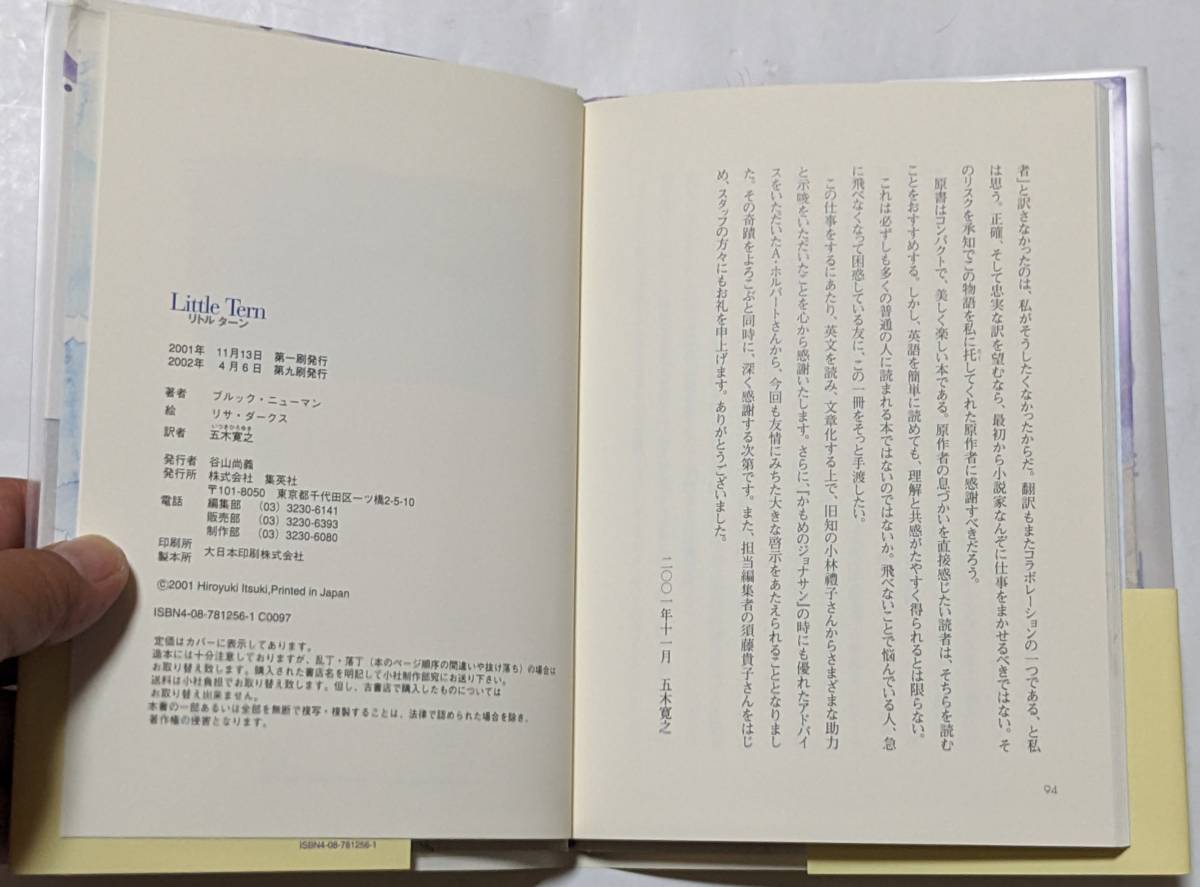 者」と訳さなかったのは、私がそうしたくなかったからだ。翻訳もまたコラボレーションの一つである、と私
は思う。正確、そして忠実な訳を望むなら、最初から小説家なんぞに仕事をまかせるべきではない。そ
のリスクを承知でこの物語を私に托してくれた原作者に感謝すべきだろう。
原書はコンパクトで、美しく楽しい本である。原作者の息づかいを直接感じたい読者は、そちらを読む
ことをおすすめする。しかし、英語を簡単に読めても、理解と共感がたやすく得られるとは限らない。
これは必ずしも多くの普通の人に読まれる本ではないのではないか。飛べないことで悩んでいる人、急
に飛べなくなって困惑している友に、この一冊をそっと手渡したい。
この仕事をするにあたり、英文を読み、文章化する上で、旧知の小林禮子さんからさまざまな助力
と示唆をいただいたことを心から感謝いたします。さらに、『かもめのジョナサン』の時にも優れたアドバイ
スをいただいたA・ホルバートさんから、今回も友情にみちた大きな啓示をあたえられることとなりまし
た。その奇蹟をよろこぶと同時に、深く感謝する次第です。また、担当編集者の須藤貴子さんをはじ
め、スタッフの方々にもお礼を申上げます。ありがとうございました。
二〇〇一年十一月 五木寛之
94
Little Tern
リトル ターン
2001年 11月13日 第一刷発行
2002年 4月6日 第九刷発行
著者 ブルック・ニューマン
絵 リサ・ダークス
いつきひろゆき
訳者 五木寛之
発行者 谷山尚義
発行所 株式会社 集英社
〒101-8050 東京都千代田区一ツ橋2-5-10
電話 編集部 (03) 3230-6141
販売部 (03) 3230-6393
制作部 (03) 3230-6080
印刷所
製本所 大日本印刷株式会社
©2001 Hiroyuki Itsuki,Printed in Japan
ISBN4-08-781256-1 C0097
定価はカバーに表示してあります。
造本には十分注意しておりますが、乱丁・落丁（本のページ順序の間違いや抜け落ち）の場合は
お取り替え致します。購入された書店名を明記して小社制作部宛にお送り下さい。
送料は小社負担でお取り替え致します。但し、古書店で購入したものについては
お取り替え出来ません。
本書の一部あるいは全部を無断で複写・複製することは、法律で認められた場合を除き、
著作権の侵害となります。
ISBN4-08-781256-1